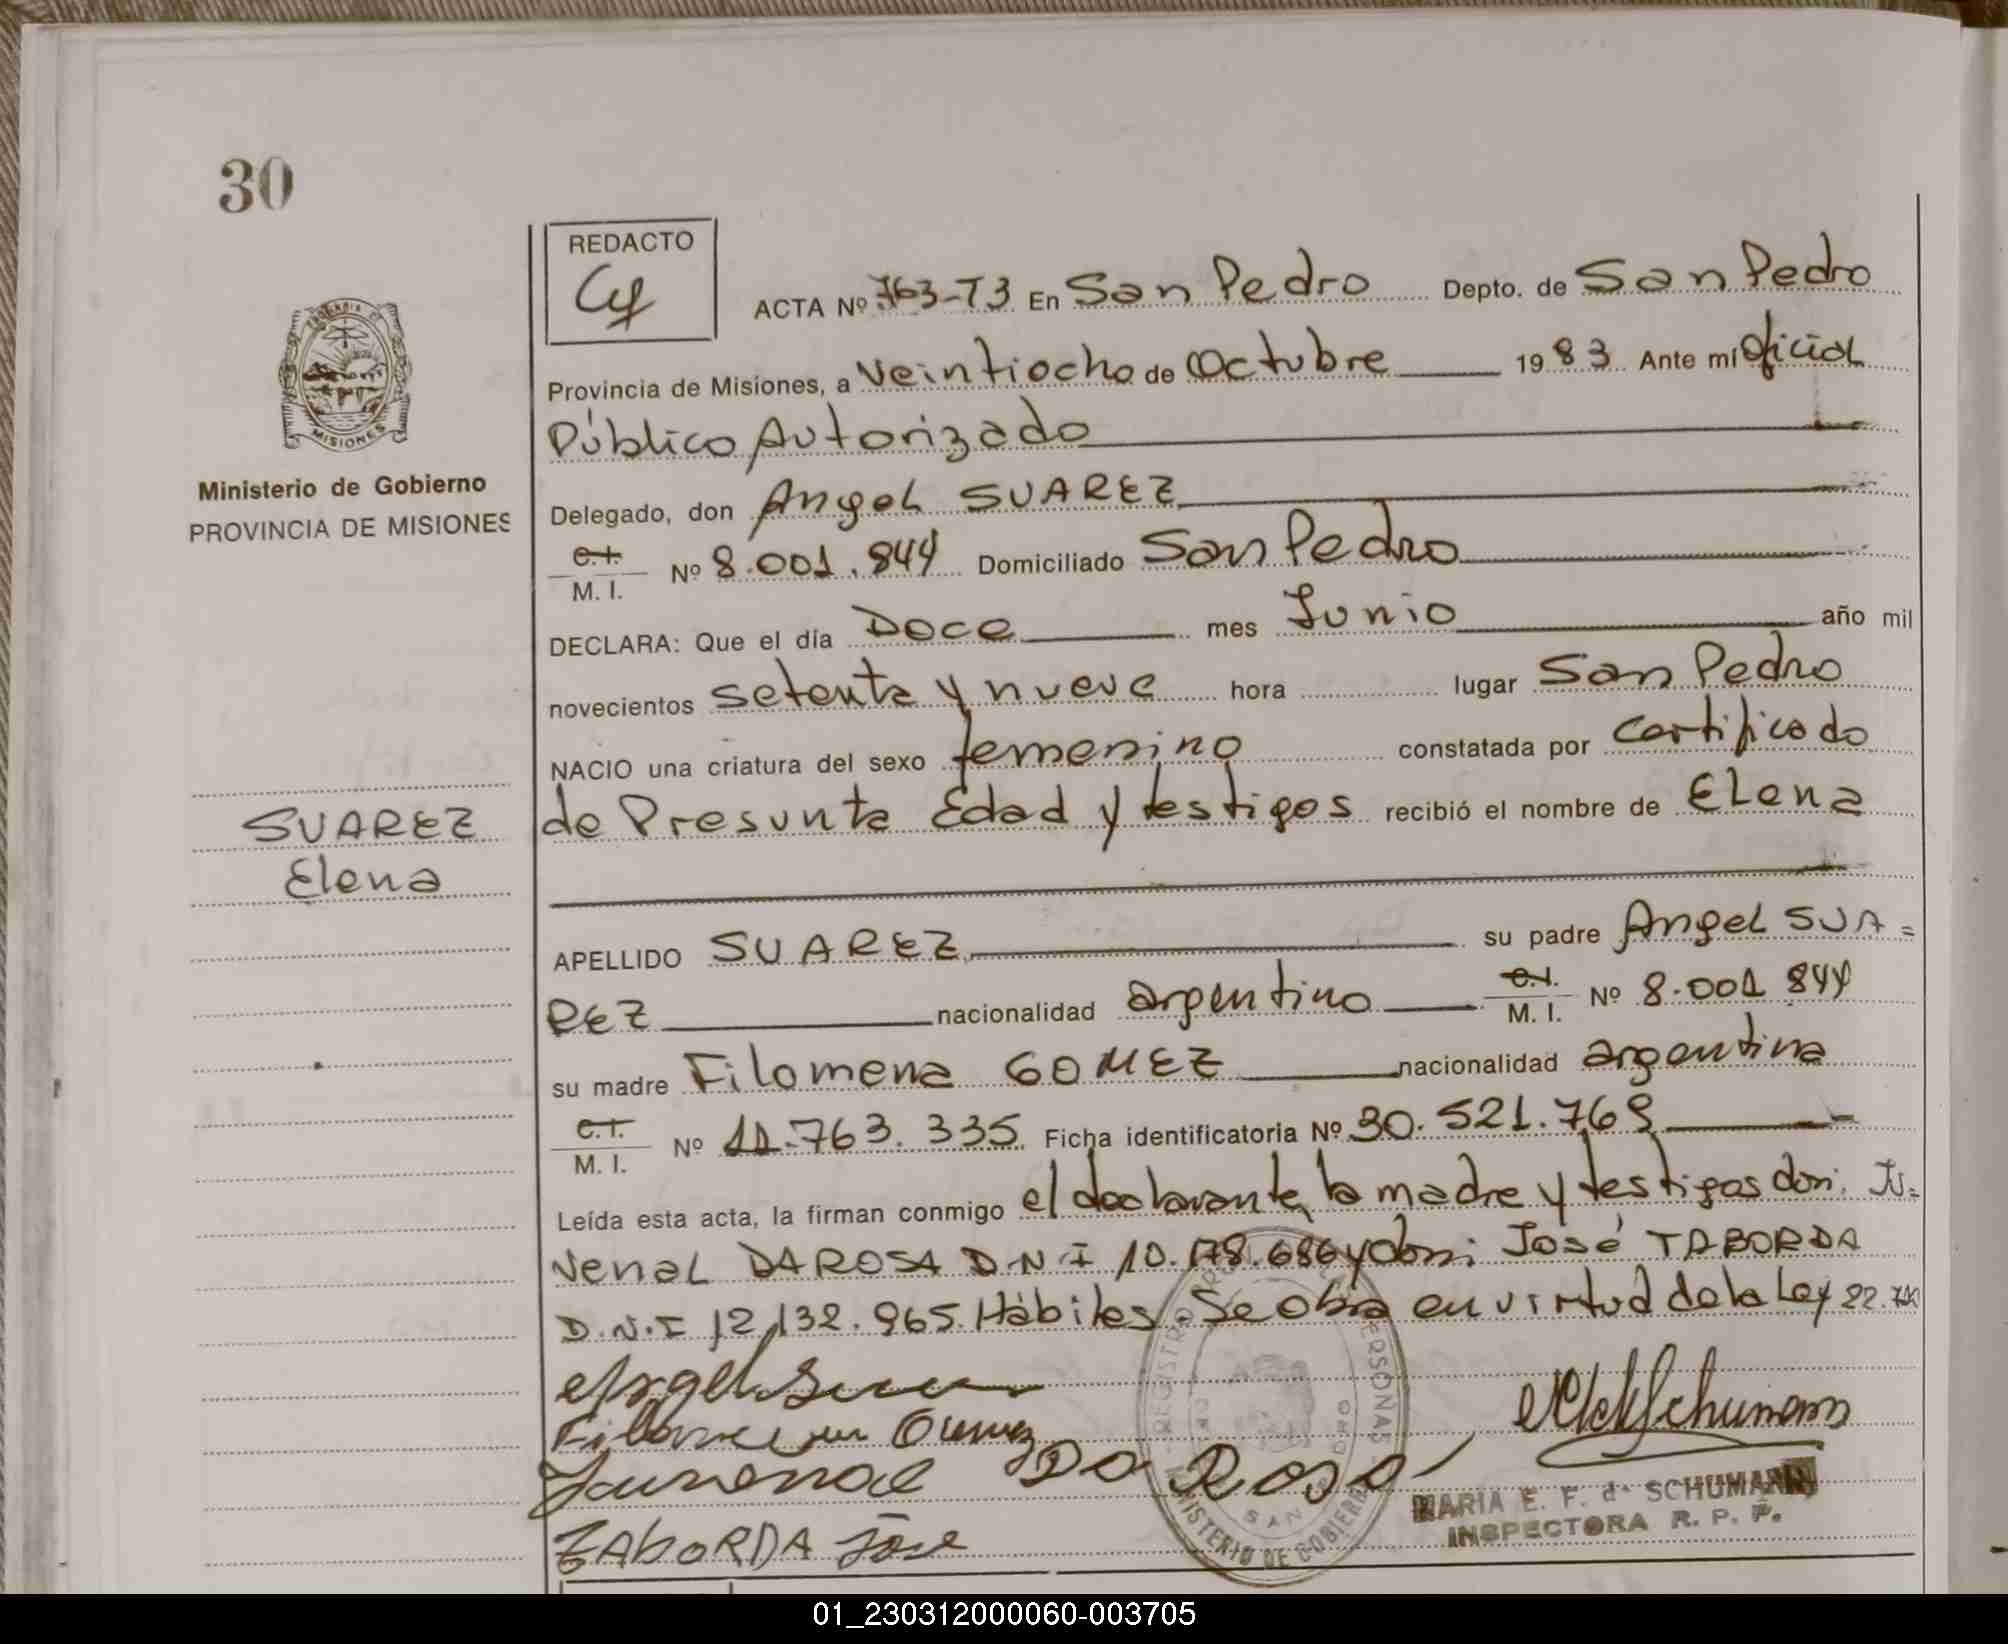 30
REDACTO
ACTA Nº 763-T3 En San Pedro Depto. de San Pedro
Provincia de Misiones, a Veintiocho de Octubre 1983 Ante mí Oficial
Público Autorizado
MISIONES
Ministerio de Gobierno
PROVINCIA DE MISIONES
Delegado, don Angel SUAREZ
C.I.
M. I. Nº 8.001.844 Domiciliado San Pedro
DECLARA: Que el día Doce mes Junio año mil
novecientos setenta y nueve hora lugar San Pedro
NACIO una criatura del sexo femenino constatada por certificado
de Presunta Edad y testigos recibió el nombre de Elena
SUAREZ
Elena
APELLIDO SUAREZ su padre Angel SUA=
REZ nacionalidad argentino C.I. M. I. Nº 8.001 844
su madre Filomena GOMEZ nacionalidad argentina
C.I.
M. I. Nº 11.763.335 Ficha identificatoria Nº 30.521.769
Leída esta acta, la firman conmigo el declarante, la madre y testigos don: Ju=
venal DAROSA D.N.I 10.178.686 y don: José TABORDA
D.N.I 12.132.965. Hábiles. Se obra en virtud de la Ley 22.
Angel
Juvenal Da Rosa
TABORDA José
Schumann
MARIA E. F. de SCHUMANN
INSPECTORA R. P. P.
MINISTERIO DE GOBIERNO
SAN PEDRO
01_230312000060-003705